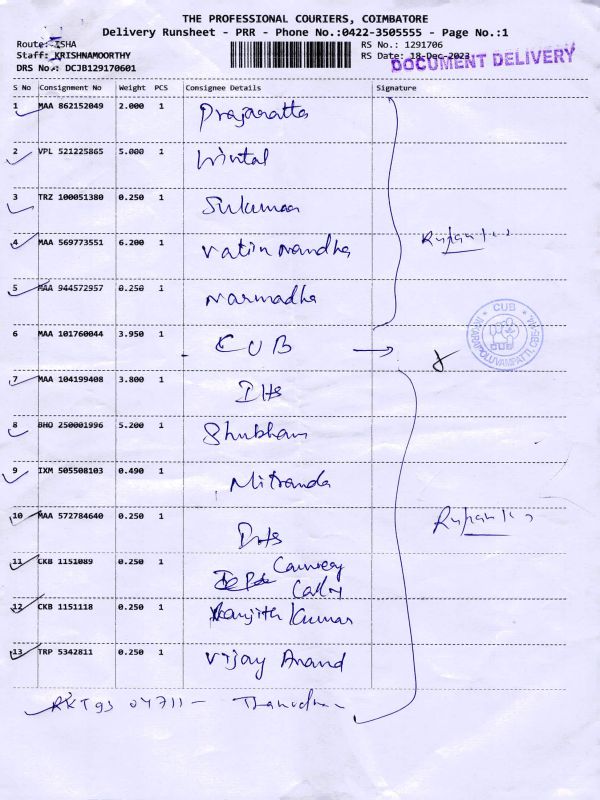 THE PROFESSIONAL COURIERS, COIMBATORE
Delivery Runsheet - PRR - Phone No.:0422-3505555 - Page No.:1
Route: ISHA RS No.: 1291706
Staff: KRISHNAMOORTHY RS Date: 18-Dec-2023
DOCUMENT DELIVERY
DRS No.: DCJB129170601
S No Consignment No Weight PCS Consignee Details Signature
1 MAA 862152049 2.000 1
2 VPL 521225865 5.000 1
3 TRZ 100051380 0.250 1 Sukumar
4 MAA 569773551 6.200 1
5 MAA 944572957 0.250 1 Narmadha
6 MAA 101760044 3.950 1 CUB
CUB
7 MAA 104199408 3.800 1
8 BHO 250001996 5.200 1 Shubham
9 IXM 505508103 0.490 1 Mitranda
10 MAA 572784640 0.250 1
11 CKB 1151089 0.250 1
12 CKB 1151118 0.250 1 Ranjith Kumar
13 TRP 5342811 0.250 1 Vijay Anand